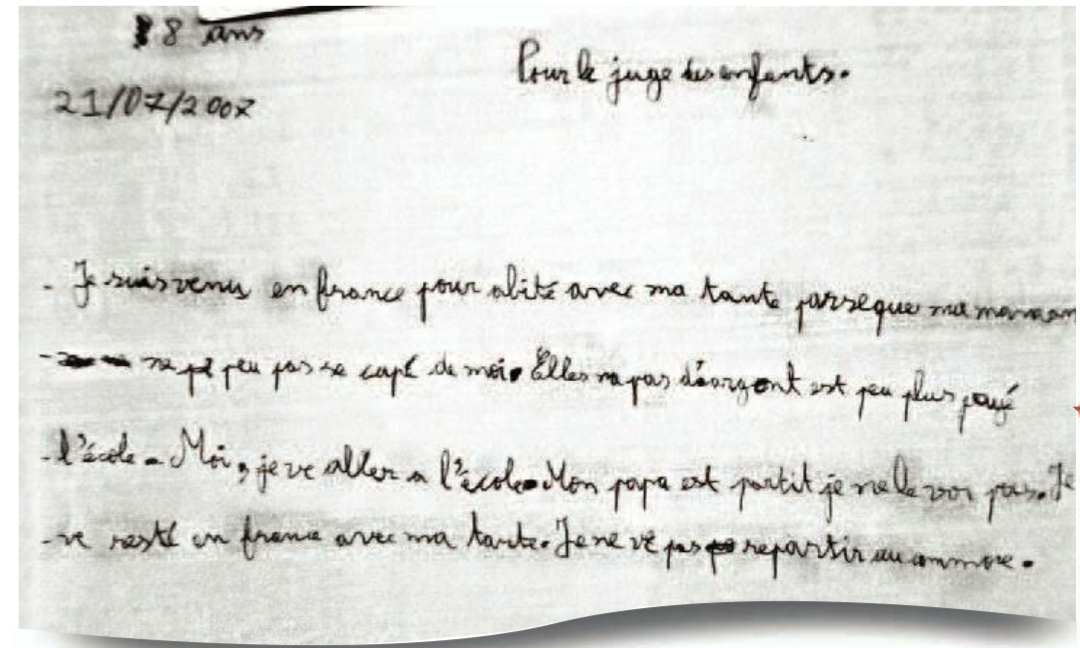 8 ans
Pour le juge des enfants.
21/07/2007
- Je suis venus en france pour abité avec ma tante parseque ma maman
- ne peu pas se capé de moi. Elles na pas d'argent est peu plus payé
- l'école. Moi, je ve aller a l'école. Mon papa est partit je ne le voi pas. Je
- ve resté en france avec ma tante. Je ne ve pas repartir au